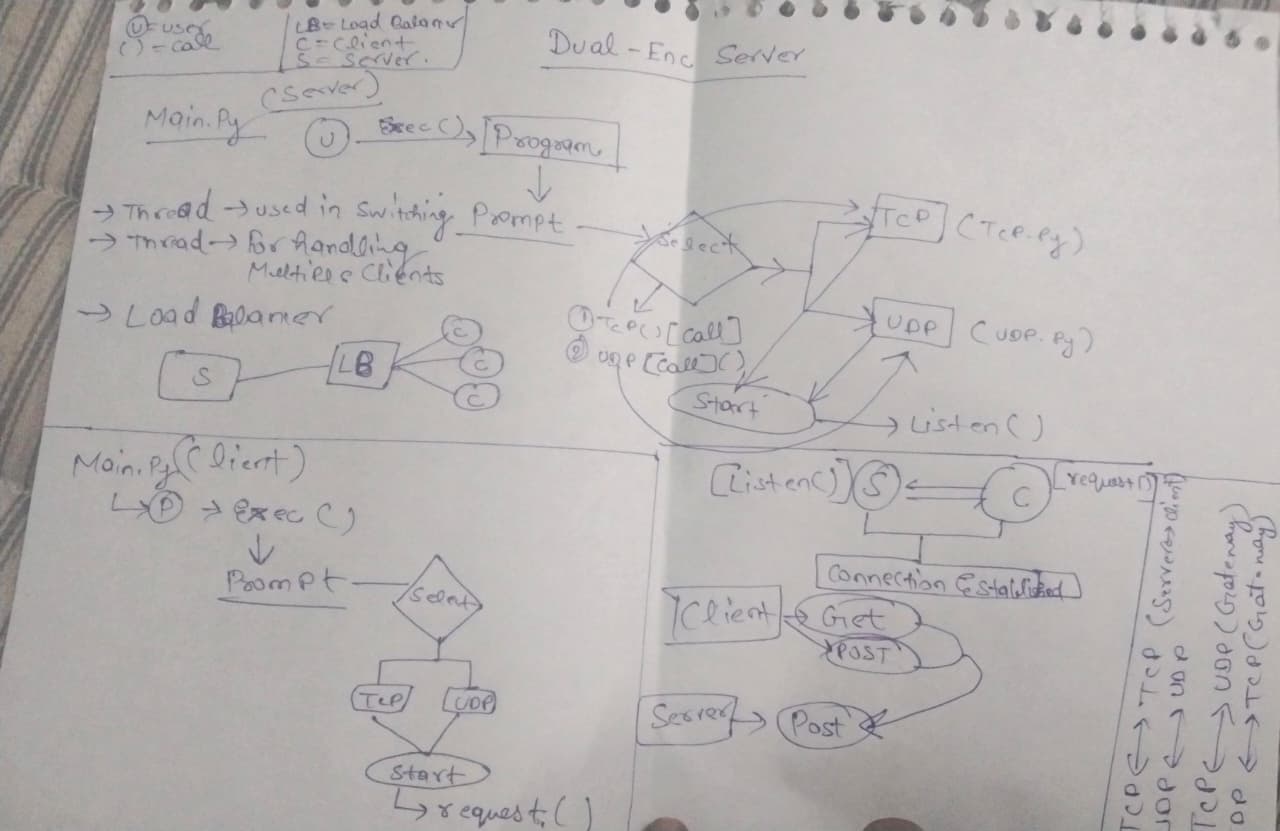 U = user
( ) = call
LB = Load Balancer
C = Client
S = Server.
Dual-Enc Server
Main.Py (Server)
U Exec() Program
→ Thread → used in Switching
→ Thread → for handling
Multiple Clients
→ Load Balancer
S LB C
C
C
Prompt
Select
TCP (TCP.Py)
UDP (UDP.Py)
① TCP() [call]
② UDP [call]()
Start → Listen()
Main.Py (Client)
P → Exec()
Prompt
Select
TCP UDP
Start
request()
[Listen()] S C [request()]
Connection Established
Client → Get
POST
Server → Post
TCP ↔ TCP (Server ↔ Client)
UDP ↔ UDP
TCP ↔ UDP (Gateway)
UDP ↔ TCP (Gateway)